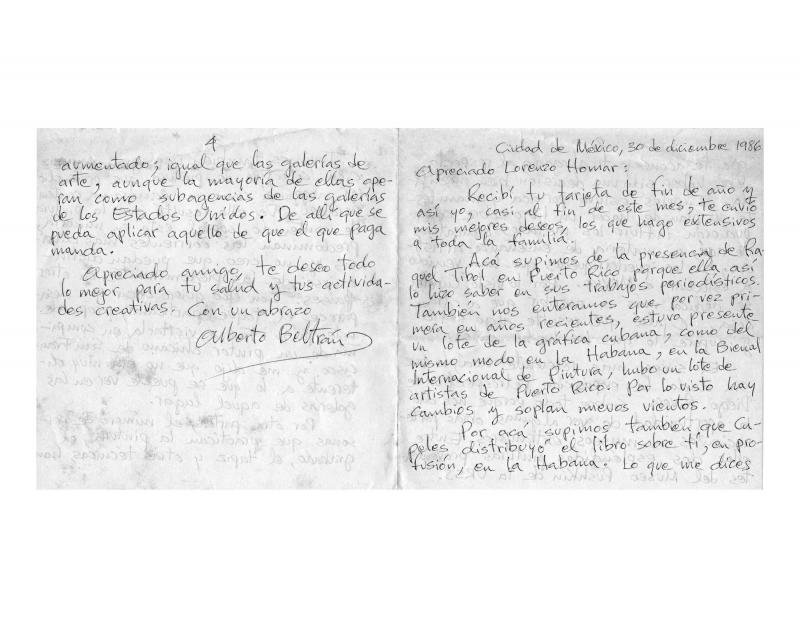 4
aumentado; igual que las galerías de
arte, aunque la mayoría de ellas ope-
ran como subagencias de las galerías
de los Estados Unidos. De allí que se
pueda aplicar aquello de que el que paga
manda.
Apreciado amigo, te deseo todo
lo mejor para tu salud y tus activida-
des creativas. Con un abrazo
Alberto Beltrán
Ciudad de México, 30 de diciembre 1986
Apreciado Lorenzo Homar:
Recibí tu tarjeta de fin de año y
así yo, casi al fin de este mes, te envío
mis mejores deseos, los que hago extensivos
a toda la familia.
Acá supimos de la presencia de Ra-
quel Tibol en Puerto Rico porque ella así
lo hizo saber en sus trabajos periodísticos.
También nos enteramos que por vez pri-
mera en años recientes, estuvo presente
un lote de la gráfica cubana, como del
mismo modo en la Habana, en la Bienal
Internacional de Pintura, hubo un lote de
artistas de Puerto Rico. Por lo visto hay
cambios y soplan nuevos vientos.
Por acá supimos también que Cu-
peles distribuyó el libro sobre tí, en pro-
fusión, en la Habana. Lo que me dices